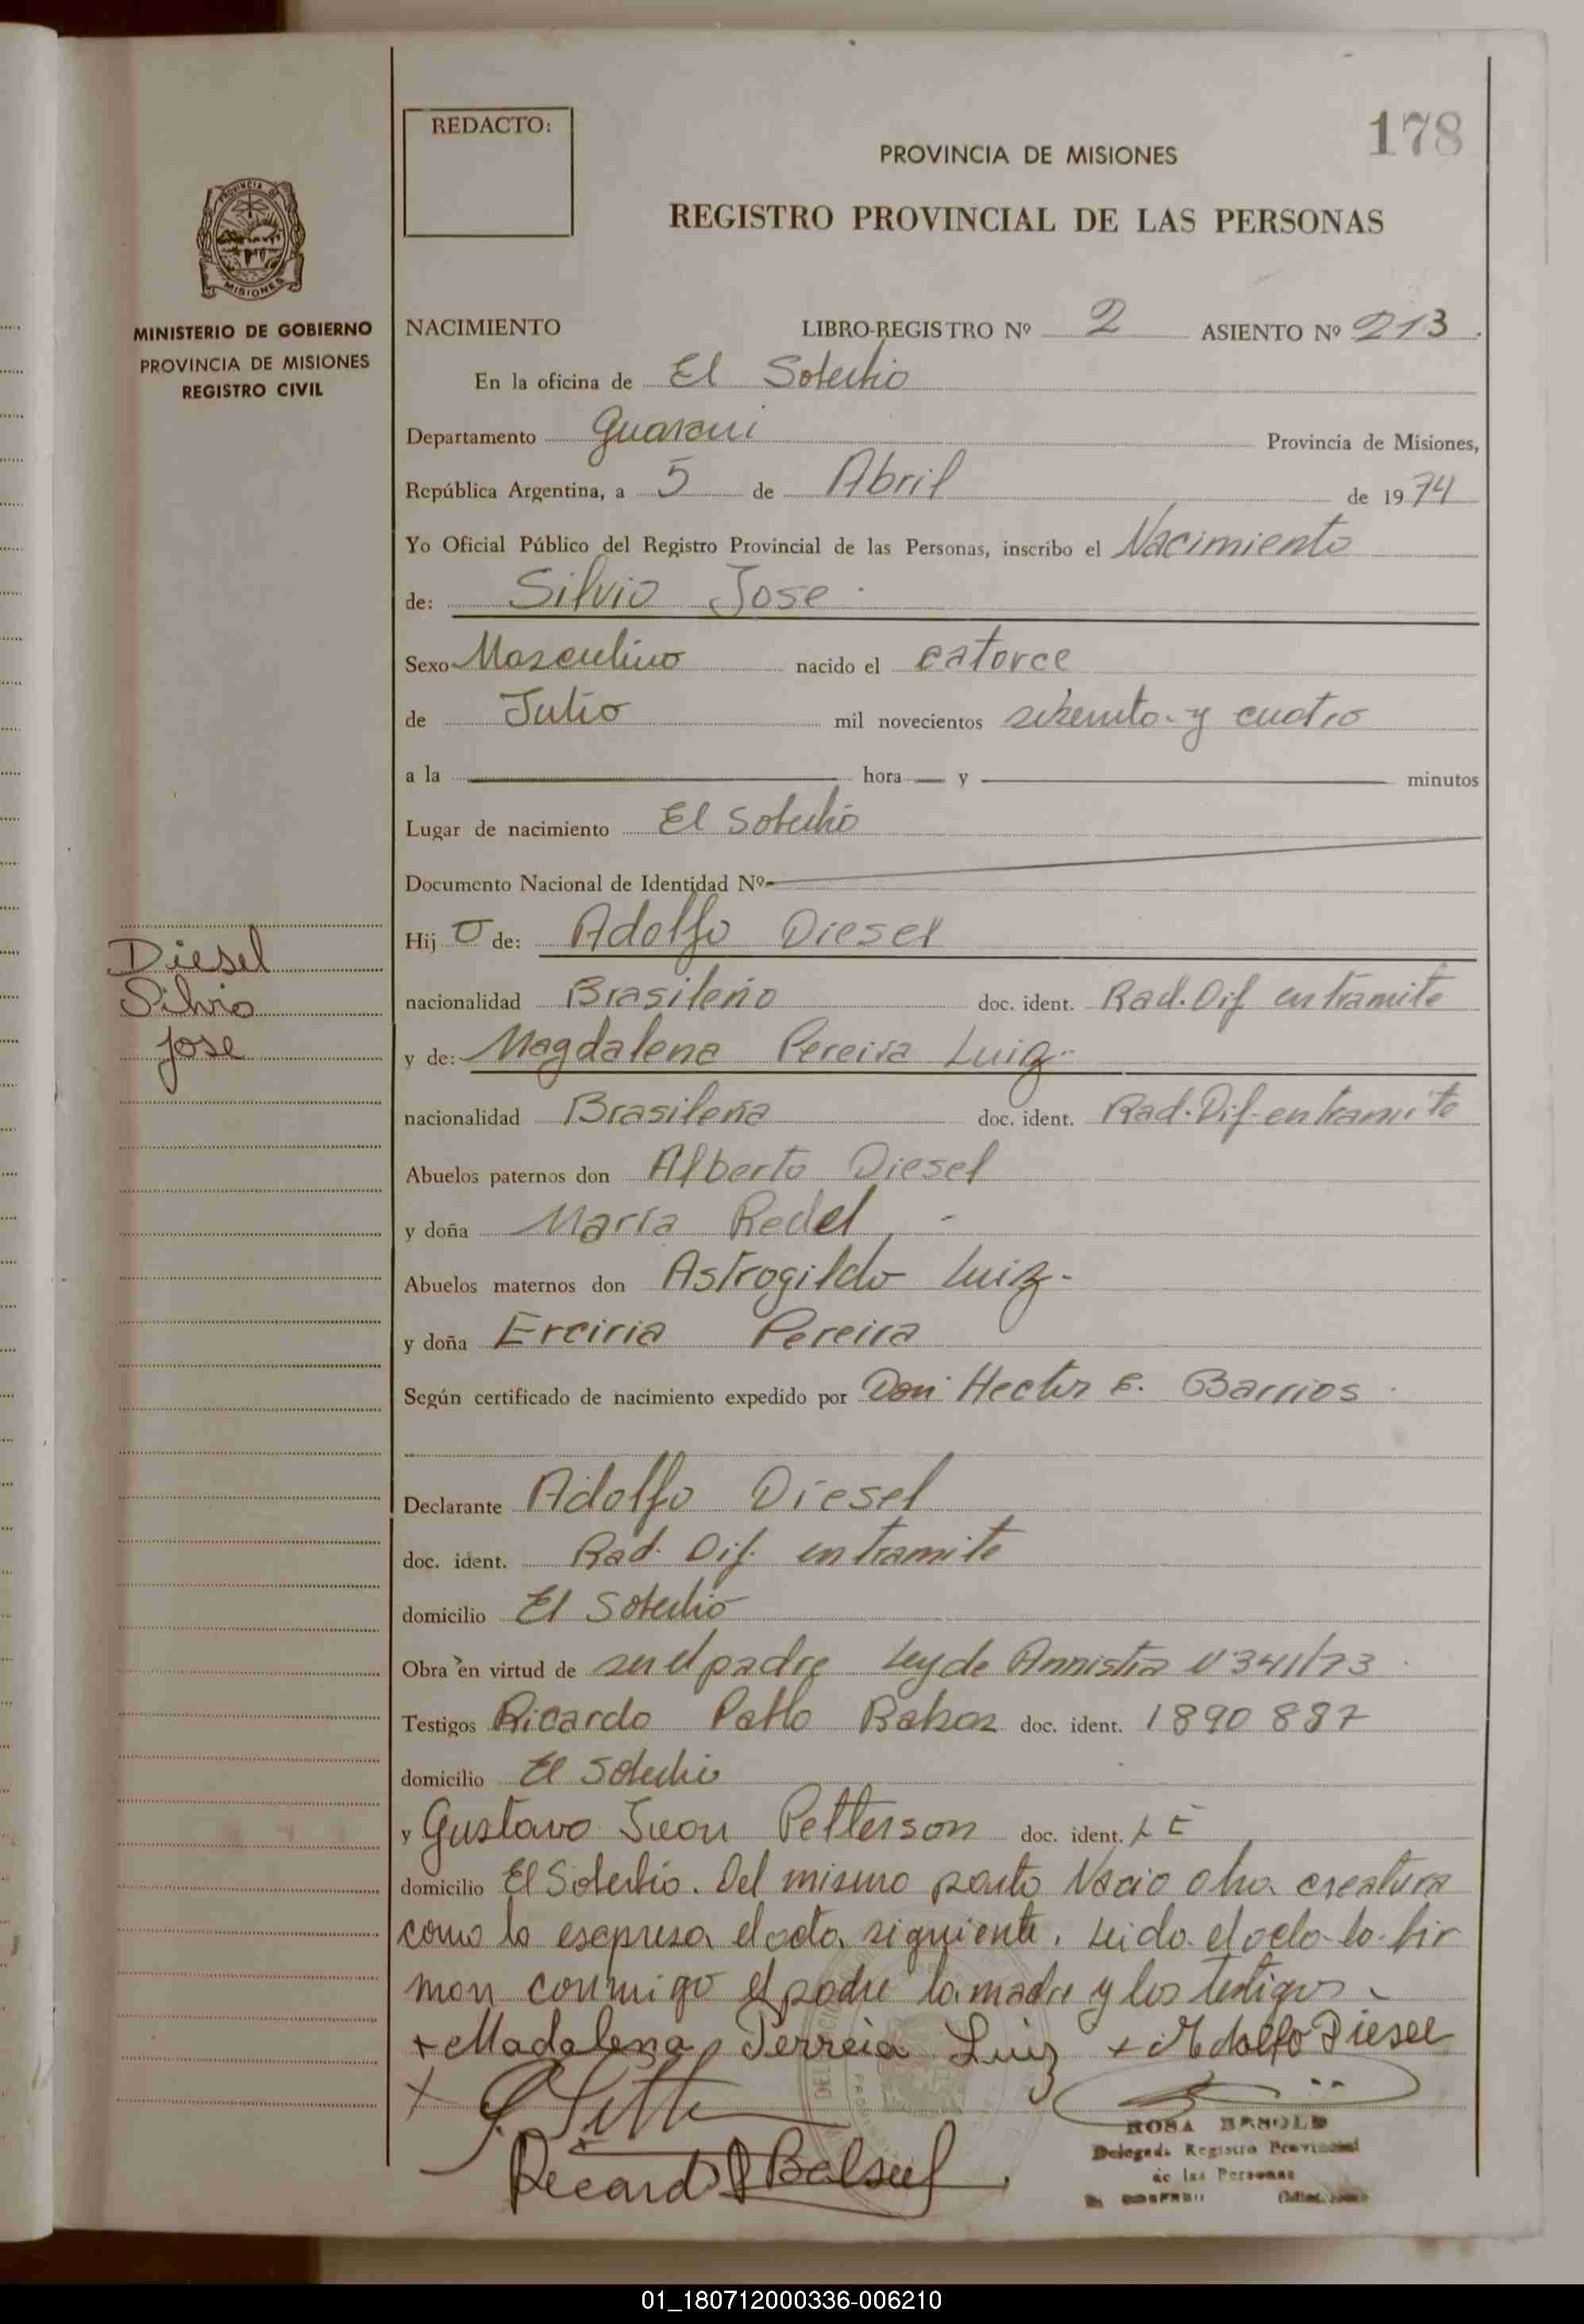 REDACTO:
178
PROVINCIA DE MISIONES
REGISTRO PROVINCIAL DE LAS PERSONAS
PROVINCIA DE
MISIONES
MINISTERIO DE GOBIERNO
PROVINCIA DE MISIONES
REGISTRO CIVIL
NACIMIENTO LIBRO-REGISTRO Nº 2 ASIENTO Nº 213
En la oficina de El Soberbio
Departamento Guarani Provincia de Misiones,
República Argentina, a 5 de Abril de 1974
Yo Oficial Público del Registro Provincial de las Personas, inscribo el Nacimiento
de: Silvio Jose
Sexo Masculino nacido el catorce
de Julio mil novecientos setenta y cuatro
a la hora y minutos
Lugar de nacimiento El Soberbio
Documento Nacional de Identidad Nº
Hij o de: Adolfo Diesel
Diesel
Silvio
Jose
nacionalidad Brasileño doc. ident. Rad. Dif en tramite
y de: Magdalena Pereira Luiz
nacionalidad Brasileña doc. ident. Rad. Dif en tramite
Abuelos paternos don Alberto Diesel
y doña María Redel
Abuelos maternos don Astrogildo Luiz
y doña Erciria Pereira
Según certificado de nacimiento expedido por Don Hector E. Barrios
Declarante Adolfo Diesel
doc. ident. Rad. Dif. en tramite
domicilio El Soberbio
Obra en virtud de ser el padre Ley de Amnistia Nº 341/73
Testigos Ricardo Pablo doc. ident. 1890887
domicilio El Soberbio
y Gustavo Juan Petterson doc. ident. L E
domicilio El Soberbio. Del mismo parto Nacio otra creatura
como lo esepresa el acta siguiente. Leida el acta la fir
man conmigo el padre la madre y los testigos
+ Madalena Perreia Luiz + Adolfo Diesel
Ricardo P
ROSA
Delegada Registro Provincial
de las Personas
01_180712000336-006210